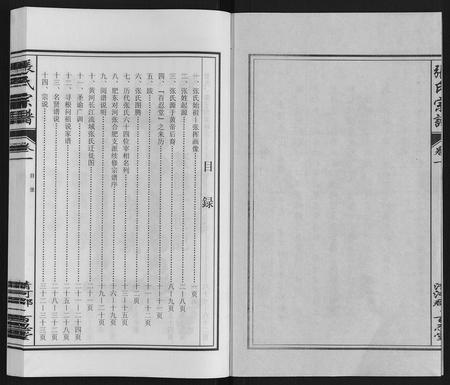 張氏宗譜
卷一
目录
一、张氏始祖－张挥画像……一页
二、张姓起源
三、张氏源于黄帝后裔……八－九页
四、「百忍堂」之来历
五、跋……十一－十二页
六、张氏图腾……十二页
七、历代张氏六十四位宰相名列……十三－十五页
八、肥东对河张合肥支派续修宗谱序……十六－十九页
九、阅谱说明……十九－二十页
十、黄河长江流域张氏迁徙图……二十一页
十一、圣谕广训……二十一－二十四页
十二、寻根问祖说家谱……二十五－二十八页
十三、名贤谱说
十四、宗说……三十二－三十三页
張氏宗譜
卷一
目录